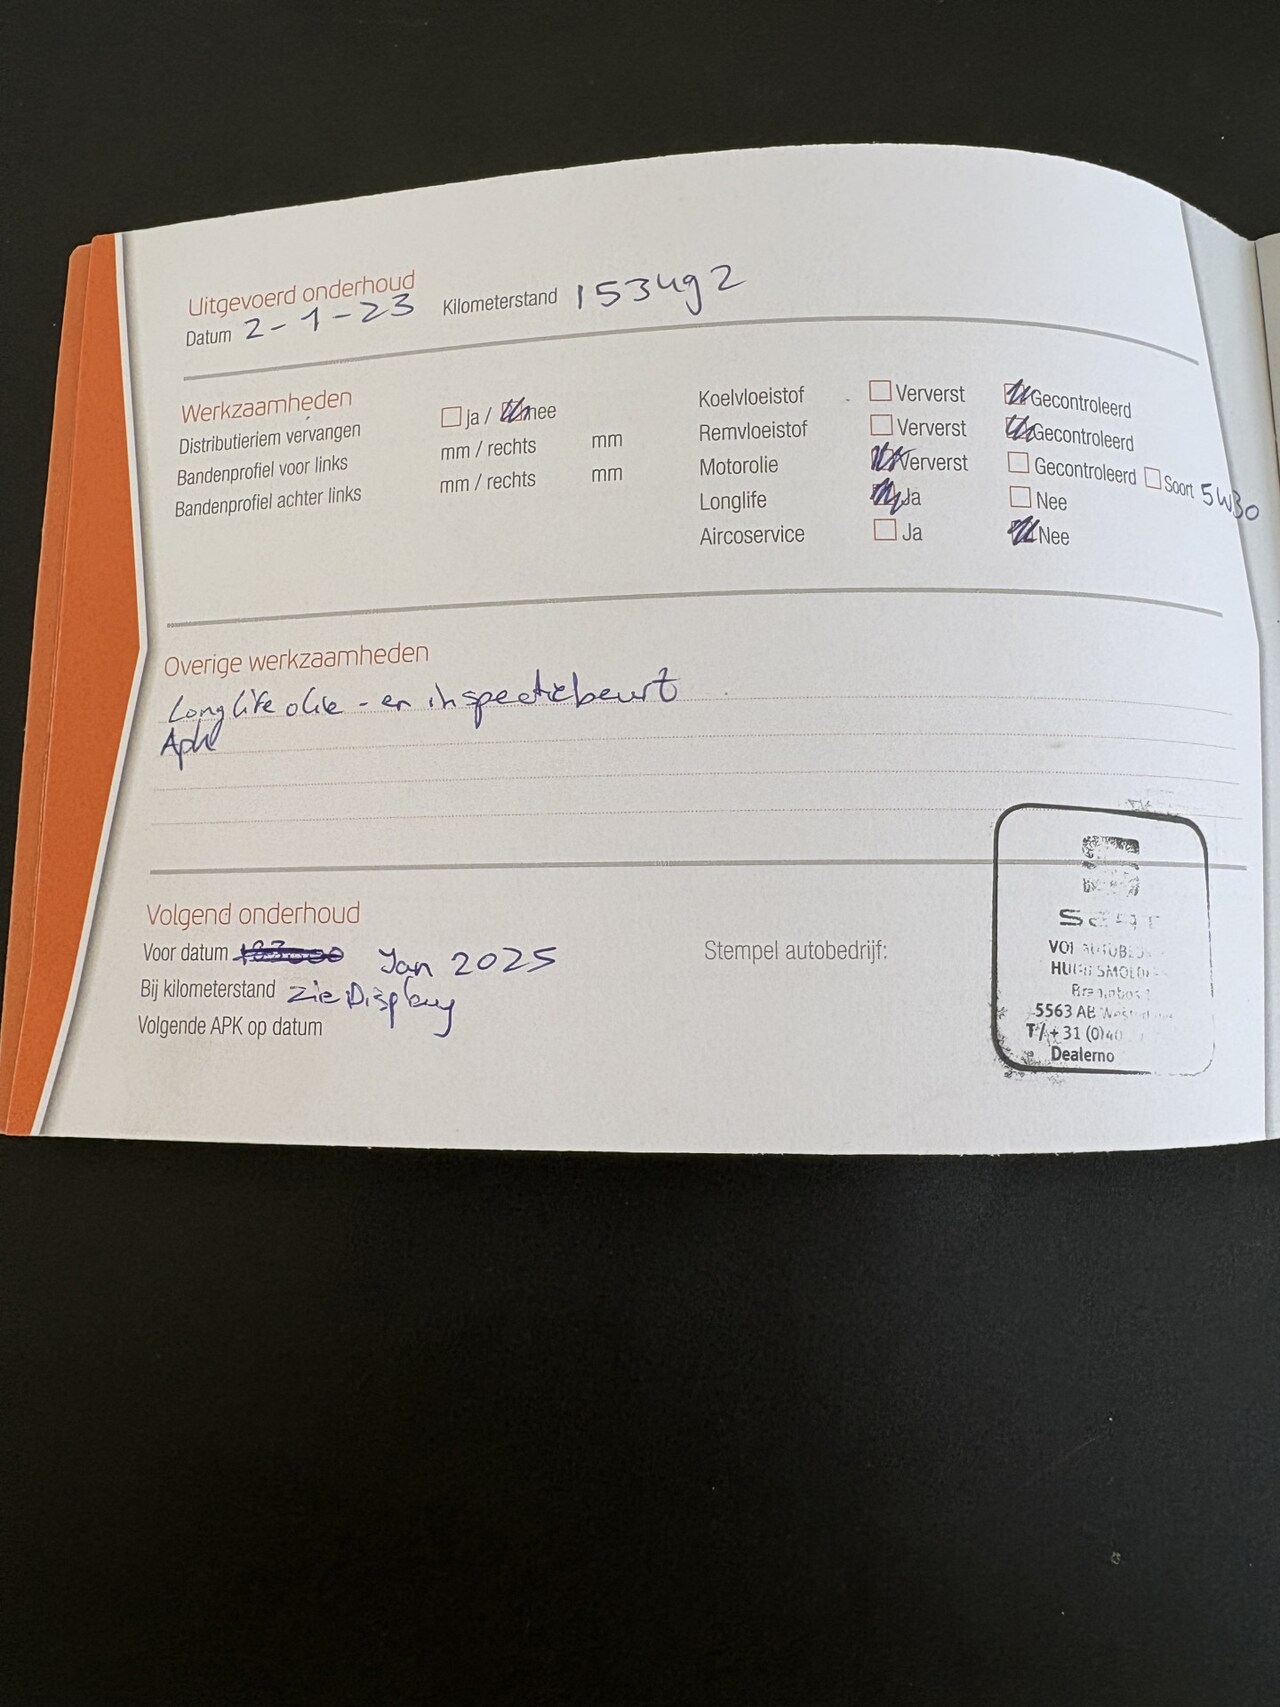 Uitgevoerd onderhoud
Datum 2-1-23 Kilometerstand 153492
Werkzaamheden
Distributieriem vervangen ja / nee
Bandenprofiel voor links mm / rechts mm
Bandenprofiel achter links mm / rechts mm
Koelvloeistof Ververst Gecontroleerd
Remvloeistof Ververst Gecontroleerd
Motorolie Ververst Gecontroleerd Soort 5W30
Longlife Ja Nee
Aircoservice Ja Nee
Overige werkzaamheden
Longlife olie - en inspectiebeurt
Apk
Volgend onderhoud
Voor datum Jan 2025
Bij kilometerstand zie Display
Volgende APK op datum
Stempel autobedrijf:
Seat
5563 AB
T/ + 31 (0)40
Dealerno